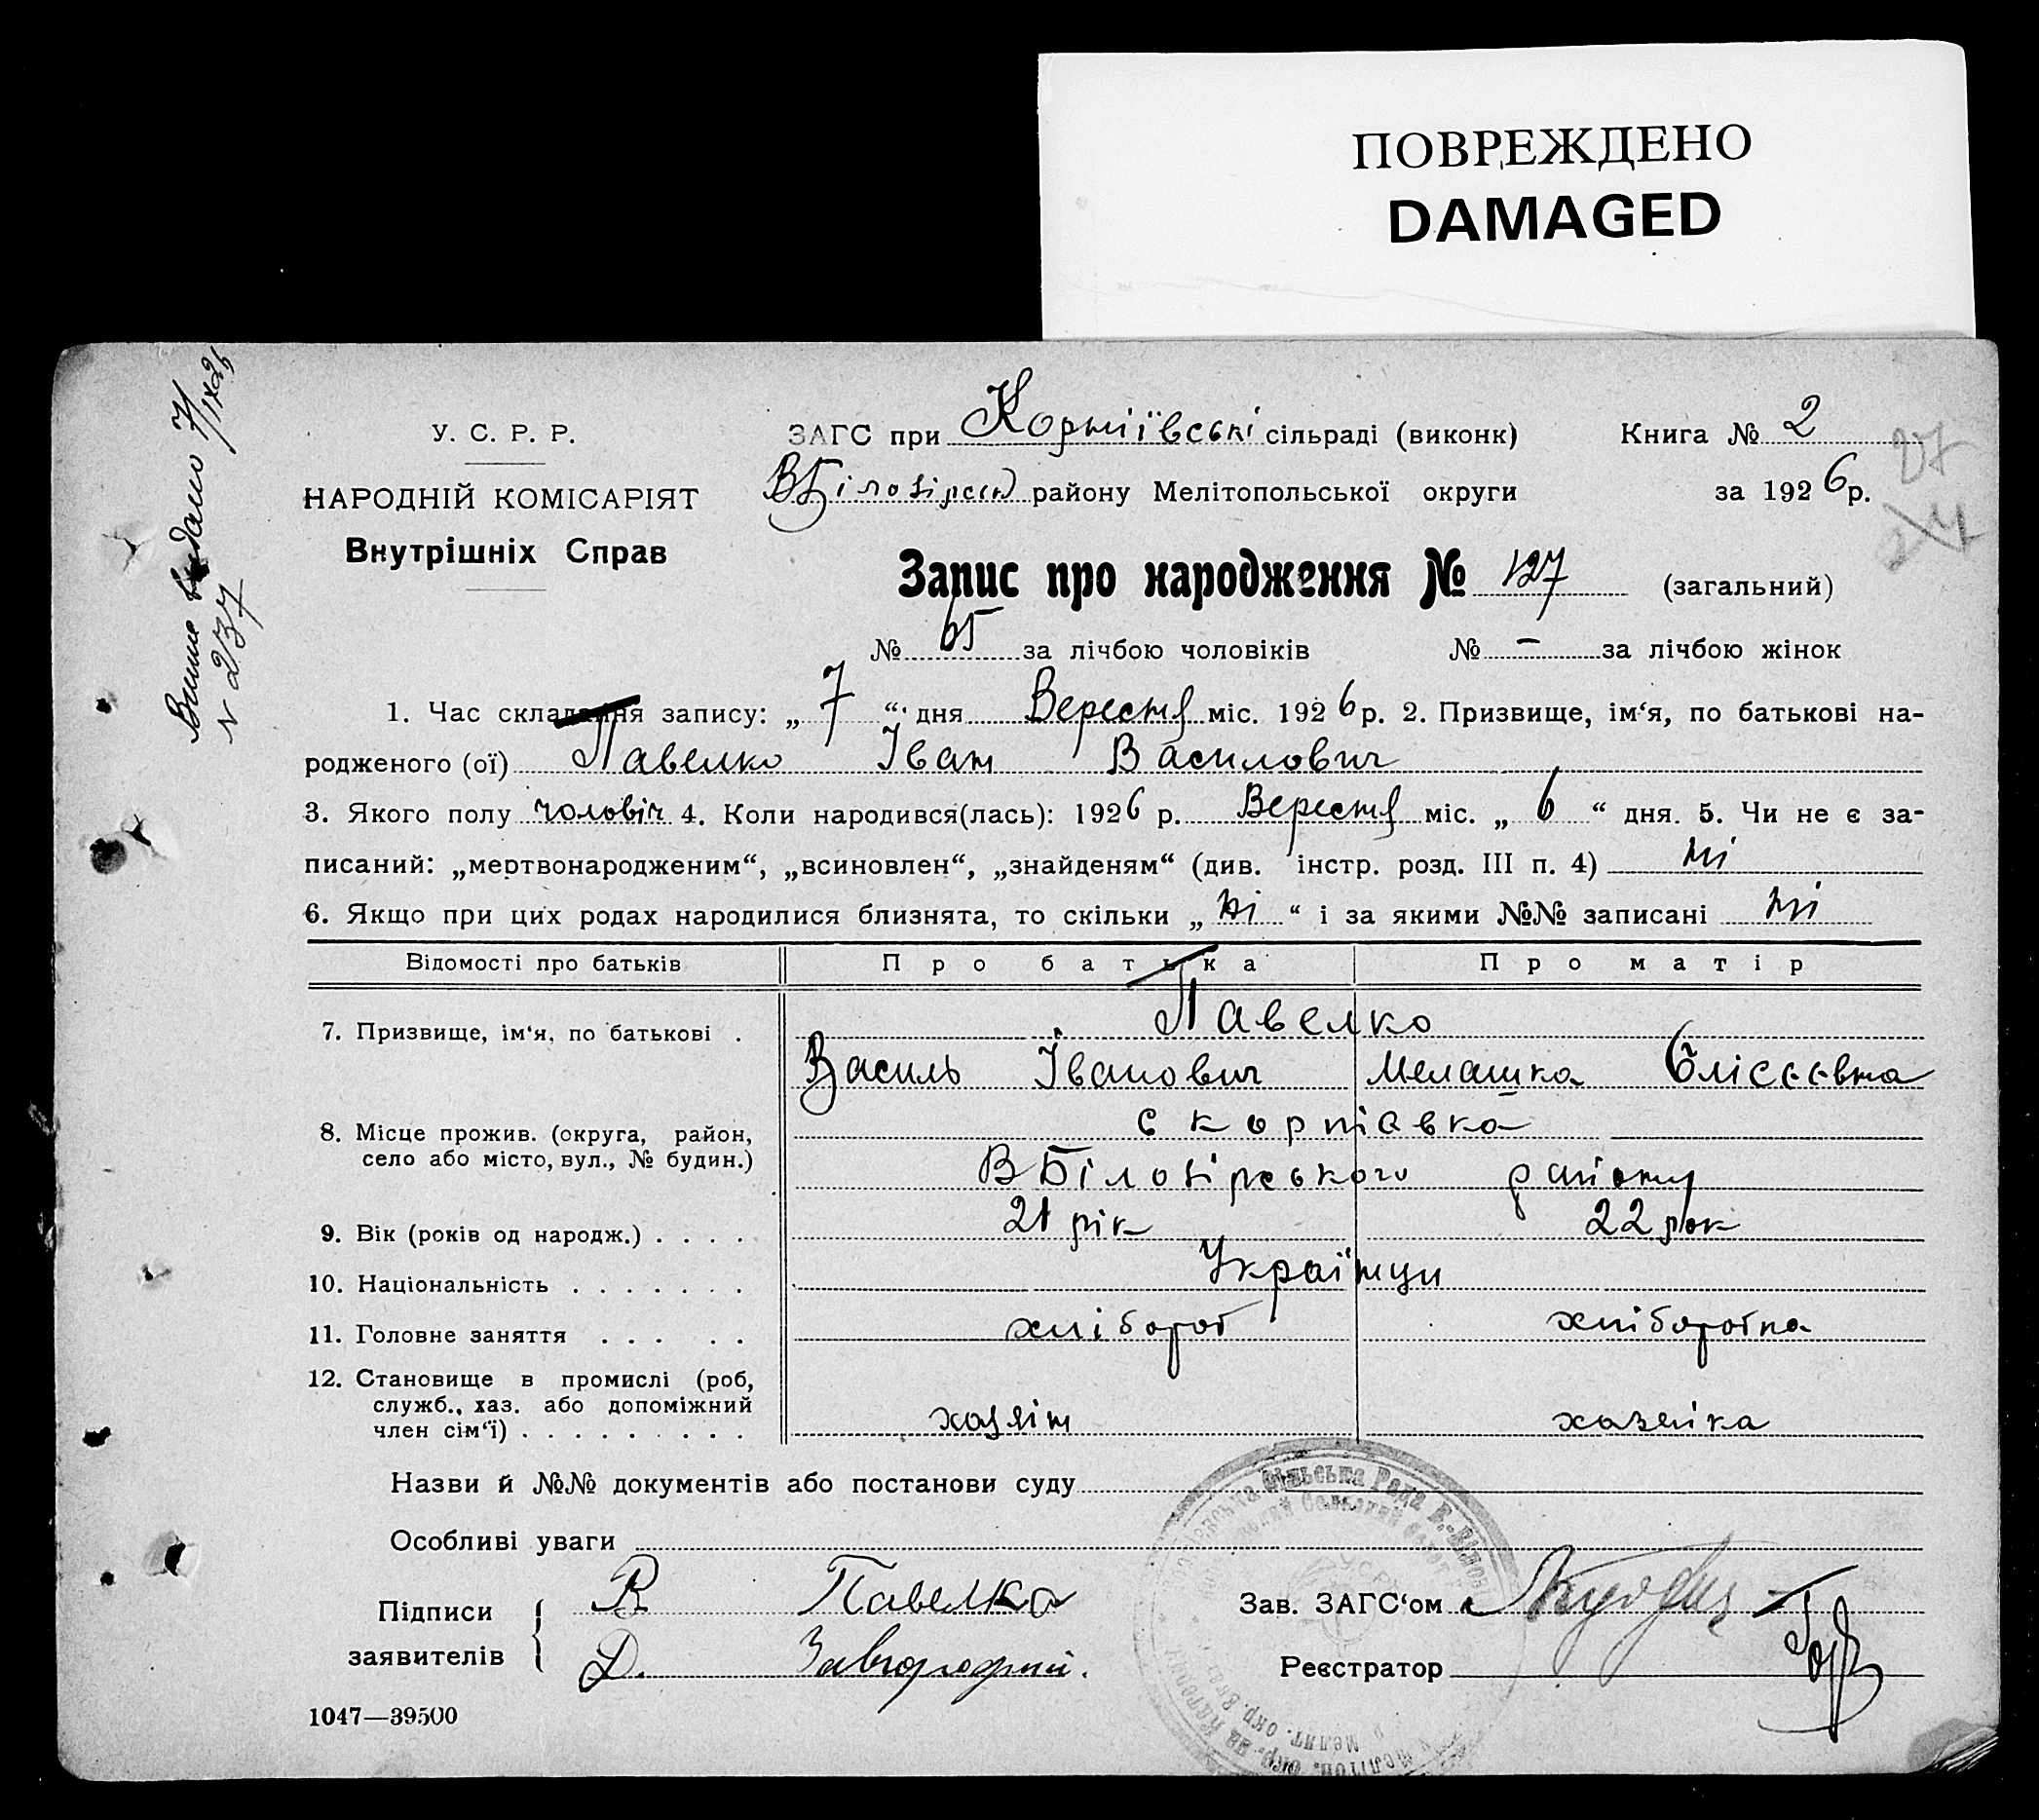 ПОВРЕЖДЕНО
DAMAGED
Випис видано 7/IX26
N 237
У. С. Р. Р.
НАРОДНІЙ КОМІСАРІЯТ
Внутрішніх Справ
ЗАГС при Корніївські сільраді (виконк) Книга № 2
27
ВБілозірськ району Мелітопольської округи за 1926р.
Запис про народження № 127 (загальний)
№ 65 за лічбою чоловіків № – за лічбою жінок
1. Час складання запису: „ 7 “ дня Вересня міс. 1926р. 2. Призвище, ім‘я, по батькові на-
родженого (ої) Павелко Іван Василович
3. Якого полу чоловіч 4. Коли народився(лась): 1926 р. Вересня міс. „ 6 “ дня. 5. Чи не є за-
писаний: „мертвонародженим“, „всиновлен“, „знайденям“ (див. інстр. розд. III п. 4) ні
6. Якщо при цих родах народилися близнята, то скільки „ ні “ і за якими №№ записані ні
Відомості про батьків Про батька Про матір
7. Призвище, ім‘я, по батькові . Павелко
Василь Іванович Мелашка Єлісєєвна
8. Місце прожив. (округа, район, с Корніавка
село або місто, вул., № будин.) ВБілозірського району
9. Вік (років од народж.) . . . . 21 рік 22 рок
10. Національність . . . . . . . Українци
11. Головне заняття . . . . . хлібороб хлібороbка
12. Становище в промислі (роб,
служб., хаз. або допоміжний
член сім‘ї) . . . . . . . . . хазяїн хазяйка
Назви й №№ документів або постанови суду
Особливі уваги
Підписи
заявителів
В Павелко
Д. Завгородний.
Зав. ЗАГС‘ом
Реєстратор
1047—39500